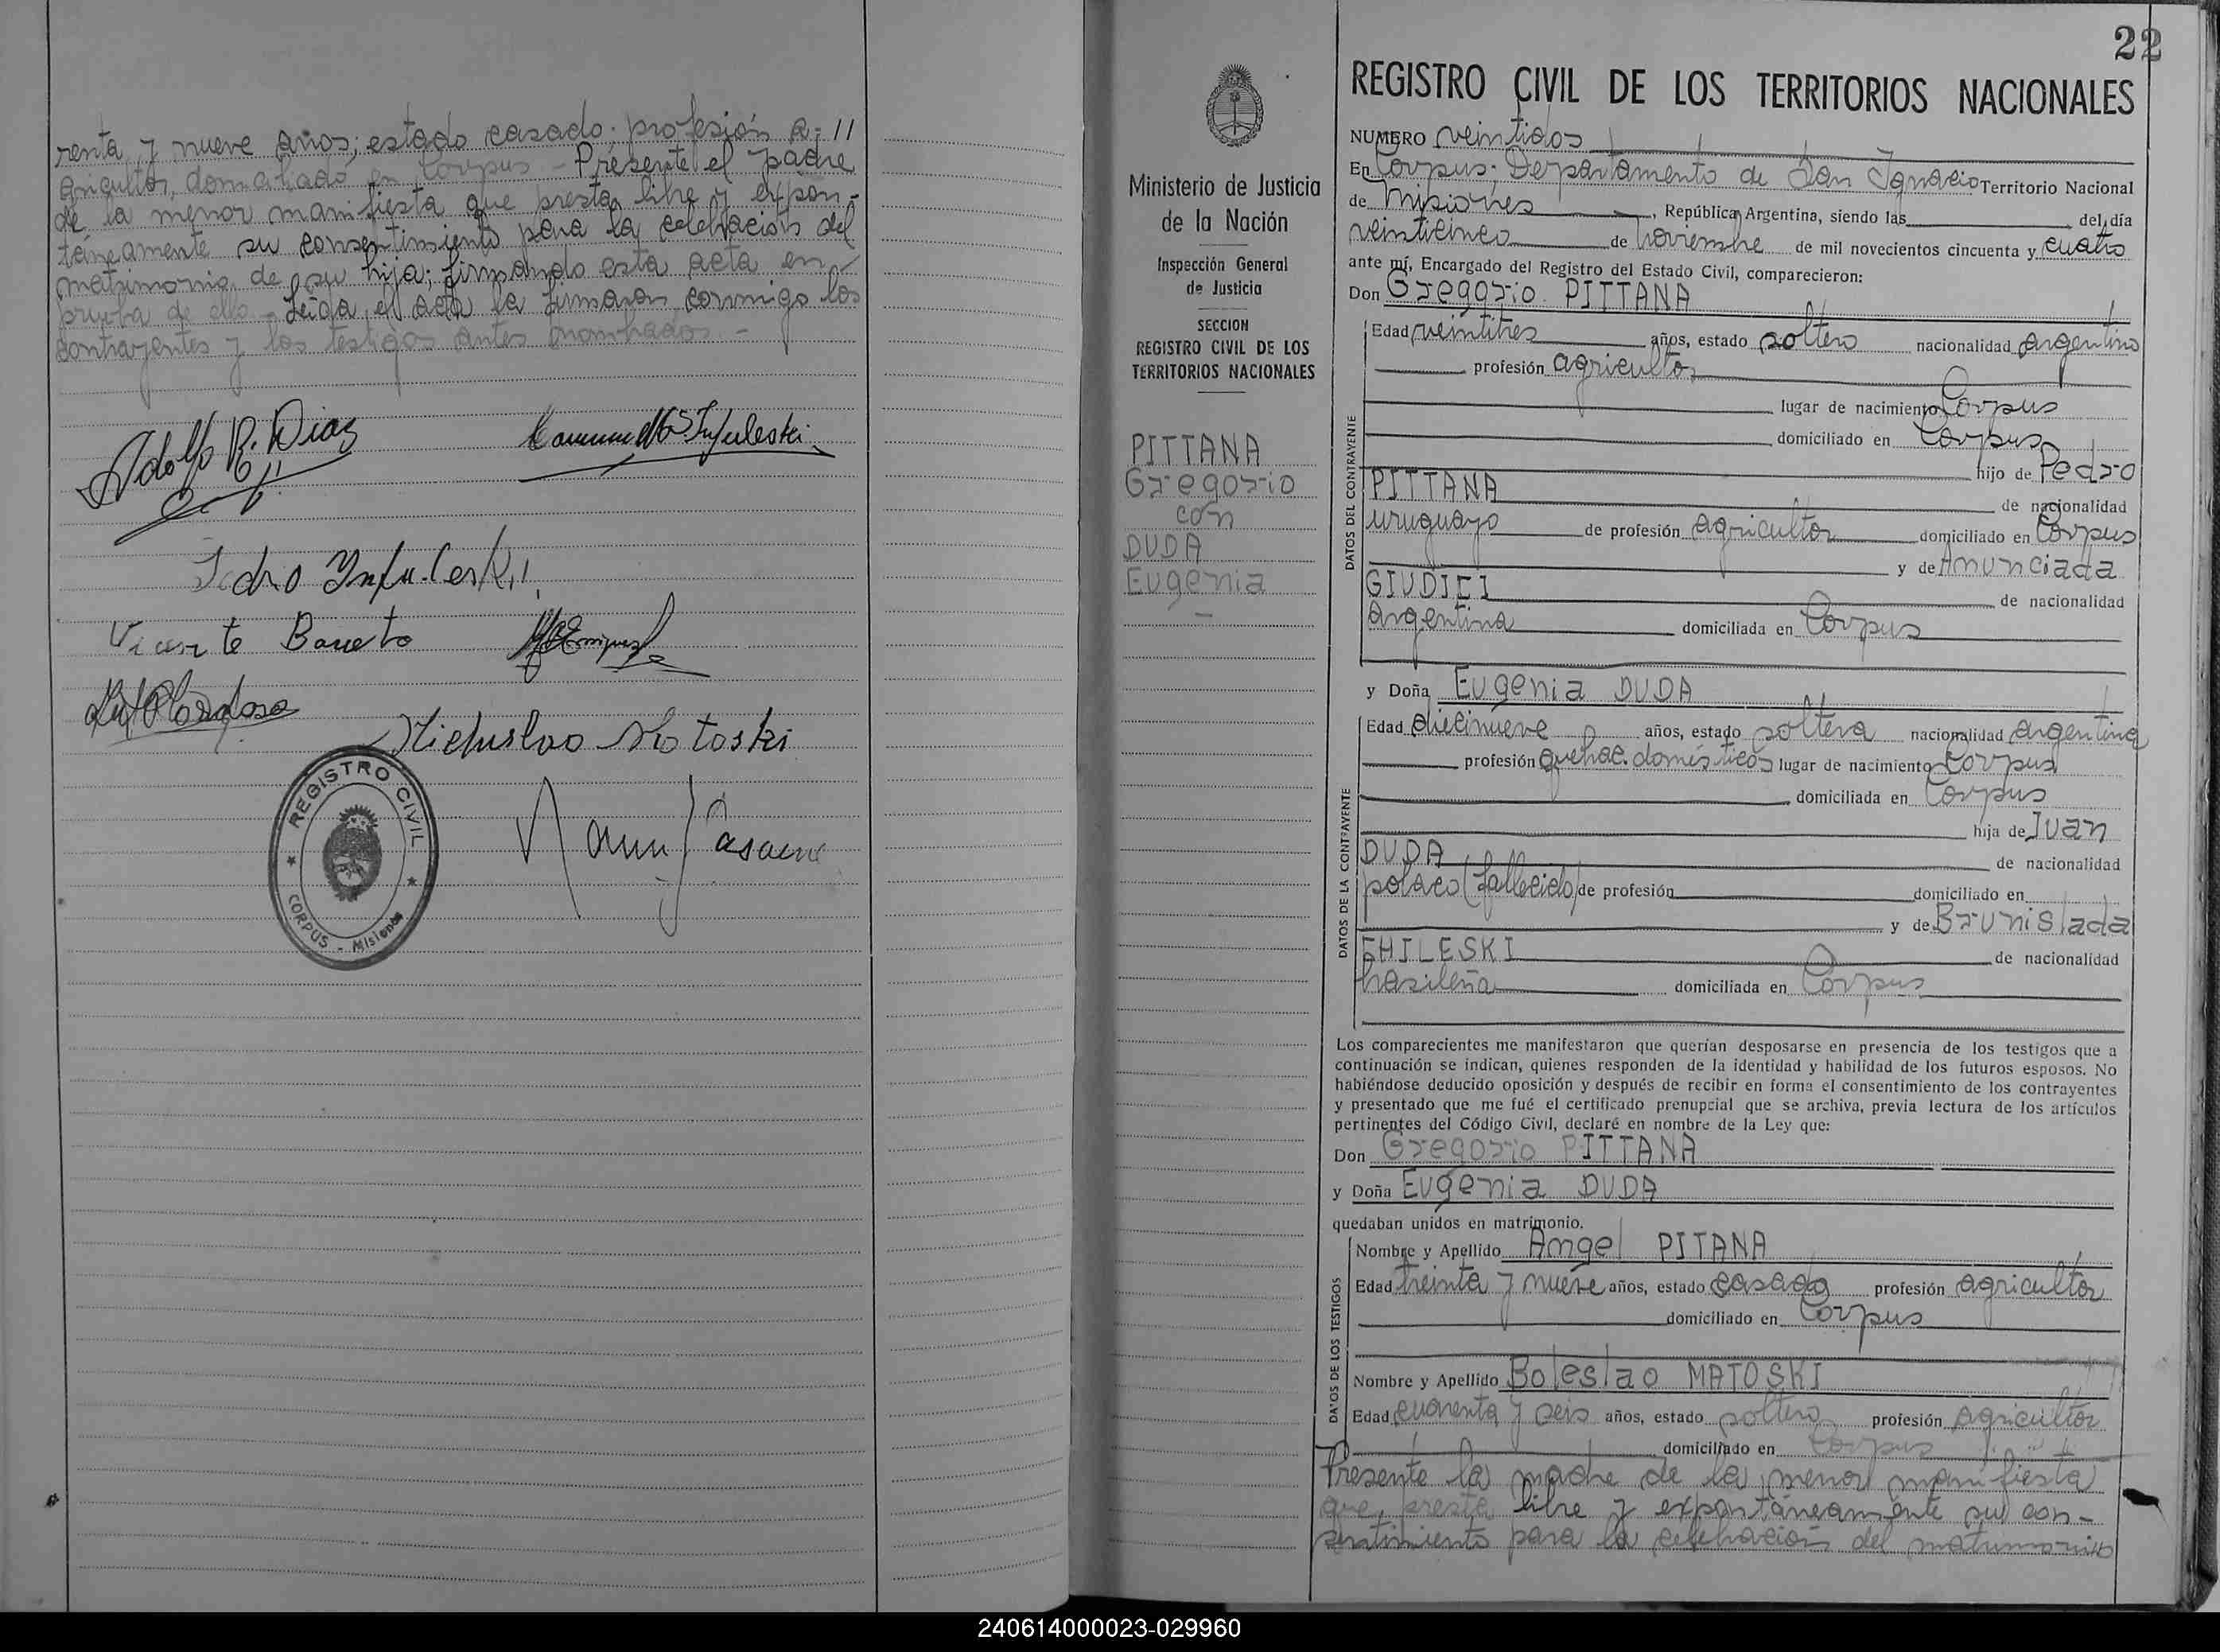 renta y nueve años; estado casado; profesión a-//
gricultor, domiciliado en Corpus - Presente el padre
de la menor manifiesta que presta libre y expon-
táneamente su consentimiento para la celebración del
matrimonio de su hija; firmando esta acta en
prueba de ello - Leída el acta la firmaron conmigo los
contrayentes y los testigos antes nombrados. -
Adolfo R. Diaz
Vicente Bareto
REGISTRO CIVIL
CORPUS - Misiones
22
Ministerio de Justicia
de la Nación
Inspección General
de Justicia
SECCION
REGISTRO CIVIL DE LOS
TERRITORIOS NACIONALES
PITTANA
Gregorio
con
DUDA
Eugenia
REGISTRO CIVIL DE LOS TERRITORIOS NACIONALES
NUMERO veintidos
En Corpus; Departamento de San Ignacio Territorio Nacional
de Misiones, República Argentina, siendo las del día
veinticinco de noviembre de mil novecientos cincuenta y cuatro
ante mí, Encargado del Registro del Estado Civil, comparecieron:
Don Gregorio PITTANA
DATOS DEL CONTRAYENTE
Edad veintitres años, estado soltero nacionalidad argentino
profesión agricultor
lugar de nacimiento Corpus
domiciliado en Corpus
hijo de Pedro
PITTANA de nacionalidad
uruguayo de profesión agricultor domiciliado en Corpus
y de Anunciada
GIUDICI de nacionalidad
argentina domiciliada en Corpus
y Doña Eugenia DUDA
DATOS DE LA CONTRAYENTE
Edad diecinueve años, estado soltera nacionalidad argentina
profesión quehac. domésticos lugar de nacimiento Corpus
domiciliada en Corpus
hija de Juan
DUDA de nacionalidad
polaco (fallecido) de profesión domiciliado en
y de Brunislada
CHILESKI de nacionalidad
brasileña domiciliada en Corpus
Los comparecientes me manifestaron que querían desposarse en presencia de los testigos que a
continuación se indican, quienes responden de la identidad y habilidad de los futuros esposos. No
habiéndose deducido oposición y después de recibir en forma el consentimiento de los contrayentes
y presentado que me fué el certificado prenupcial que se archiva, previa lectura de los artículos
pertinentes del Código Civil, declaré en nombre de la Ley que:
Don Gregorio PITTANA
y Doña Eugenia DUDA
quedaban unidos en matrimonio.
DATOS DE LOS TESTIGOS
Nombre y Apellido Angel PITANA
Edad treinta y nueve años, estado casado profesión agricultor
domiciliado en Corpus
Nombre y Apellido Boleslao MATOSKI
Edad cuarenta y seis años, estado soltero profesión agricultor
domiciliado en Corpus
Presente la madre de la menor manifiesta
que presta libre y expontáneamente su con-
sentimiento para la celebración del matrimonio
240614000023-029960